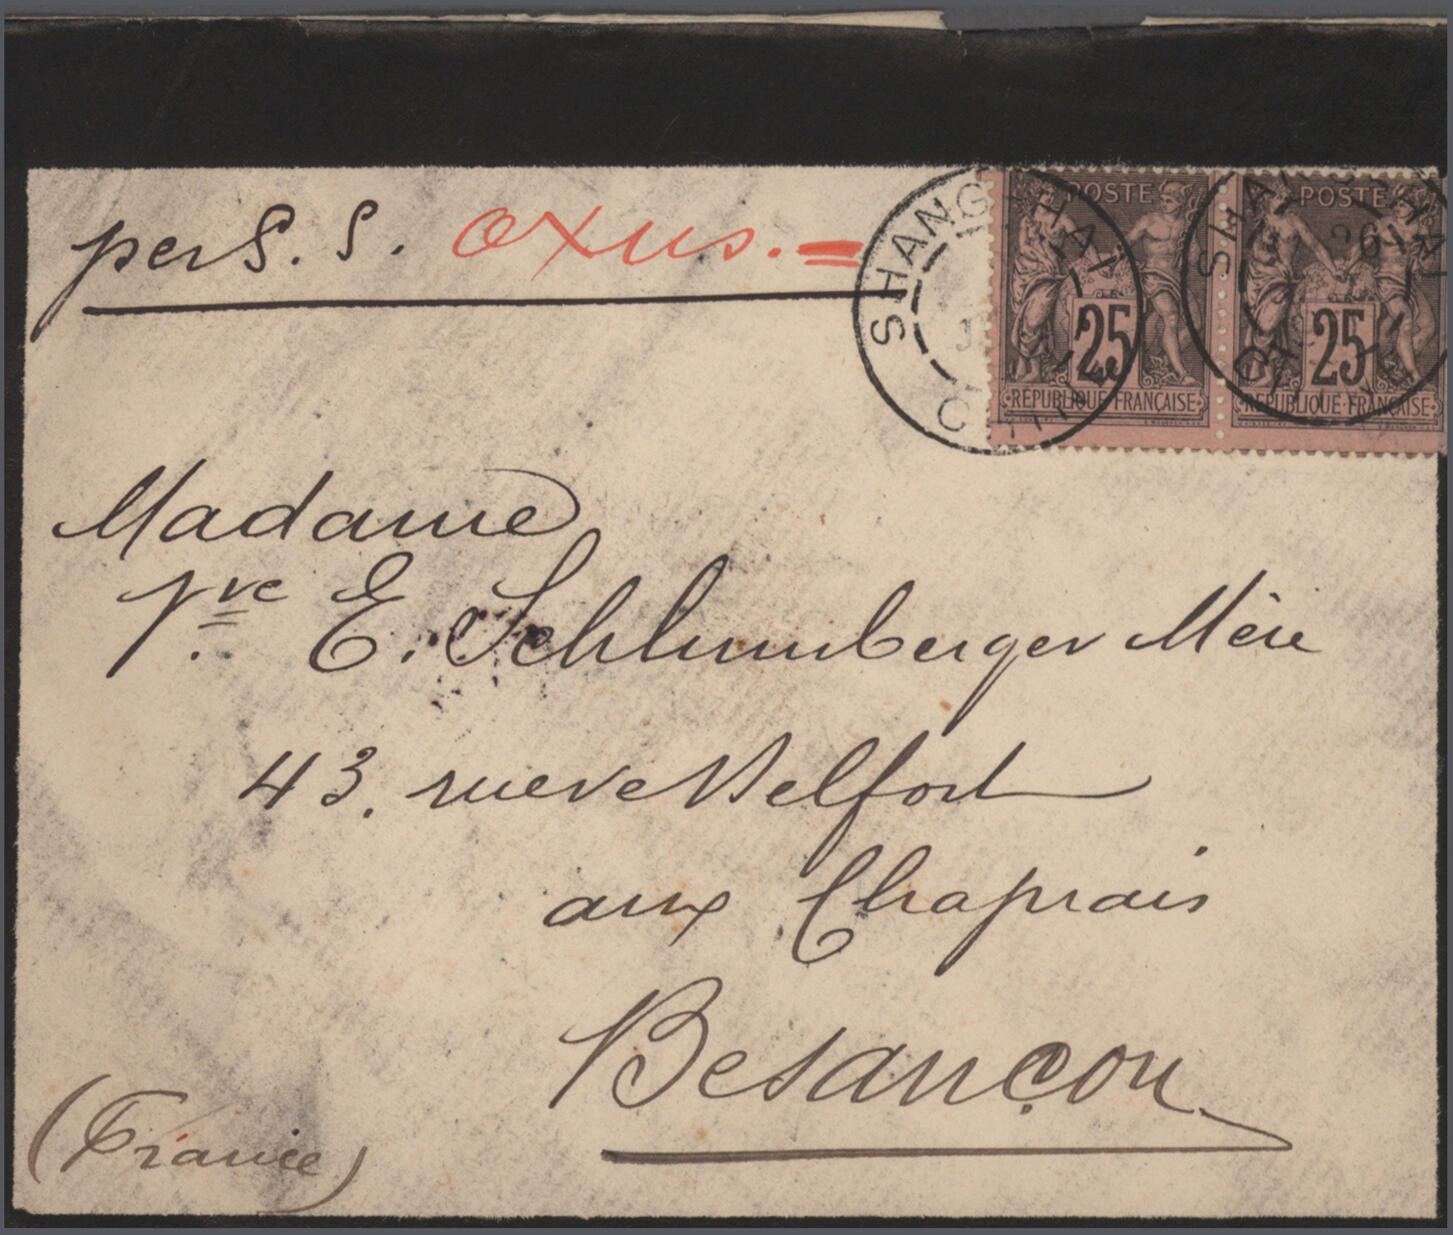 per S. S. Oxus. =
SHANG-HAI
CHINE
POSTE
25
RÉPUBLIQUE FRANÇAISE
SHANG-HAI
POSTE
25
RÉPUBLIQUE FRANÇAISE
Madame
Vve E. Schlumberger Mère
43. rue de Belfort
aux Chaprais
Besançon
(France)